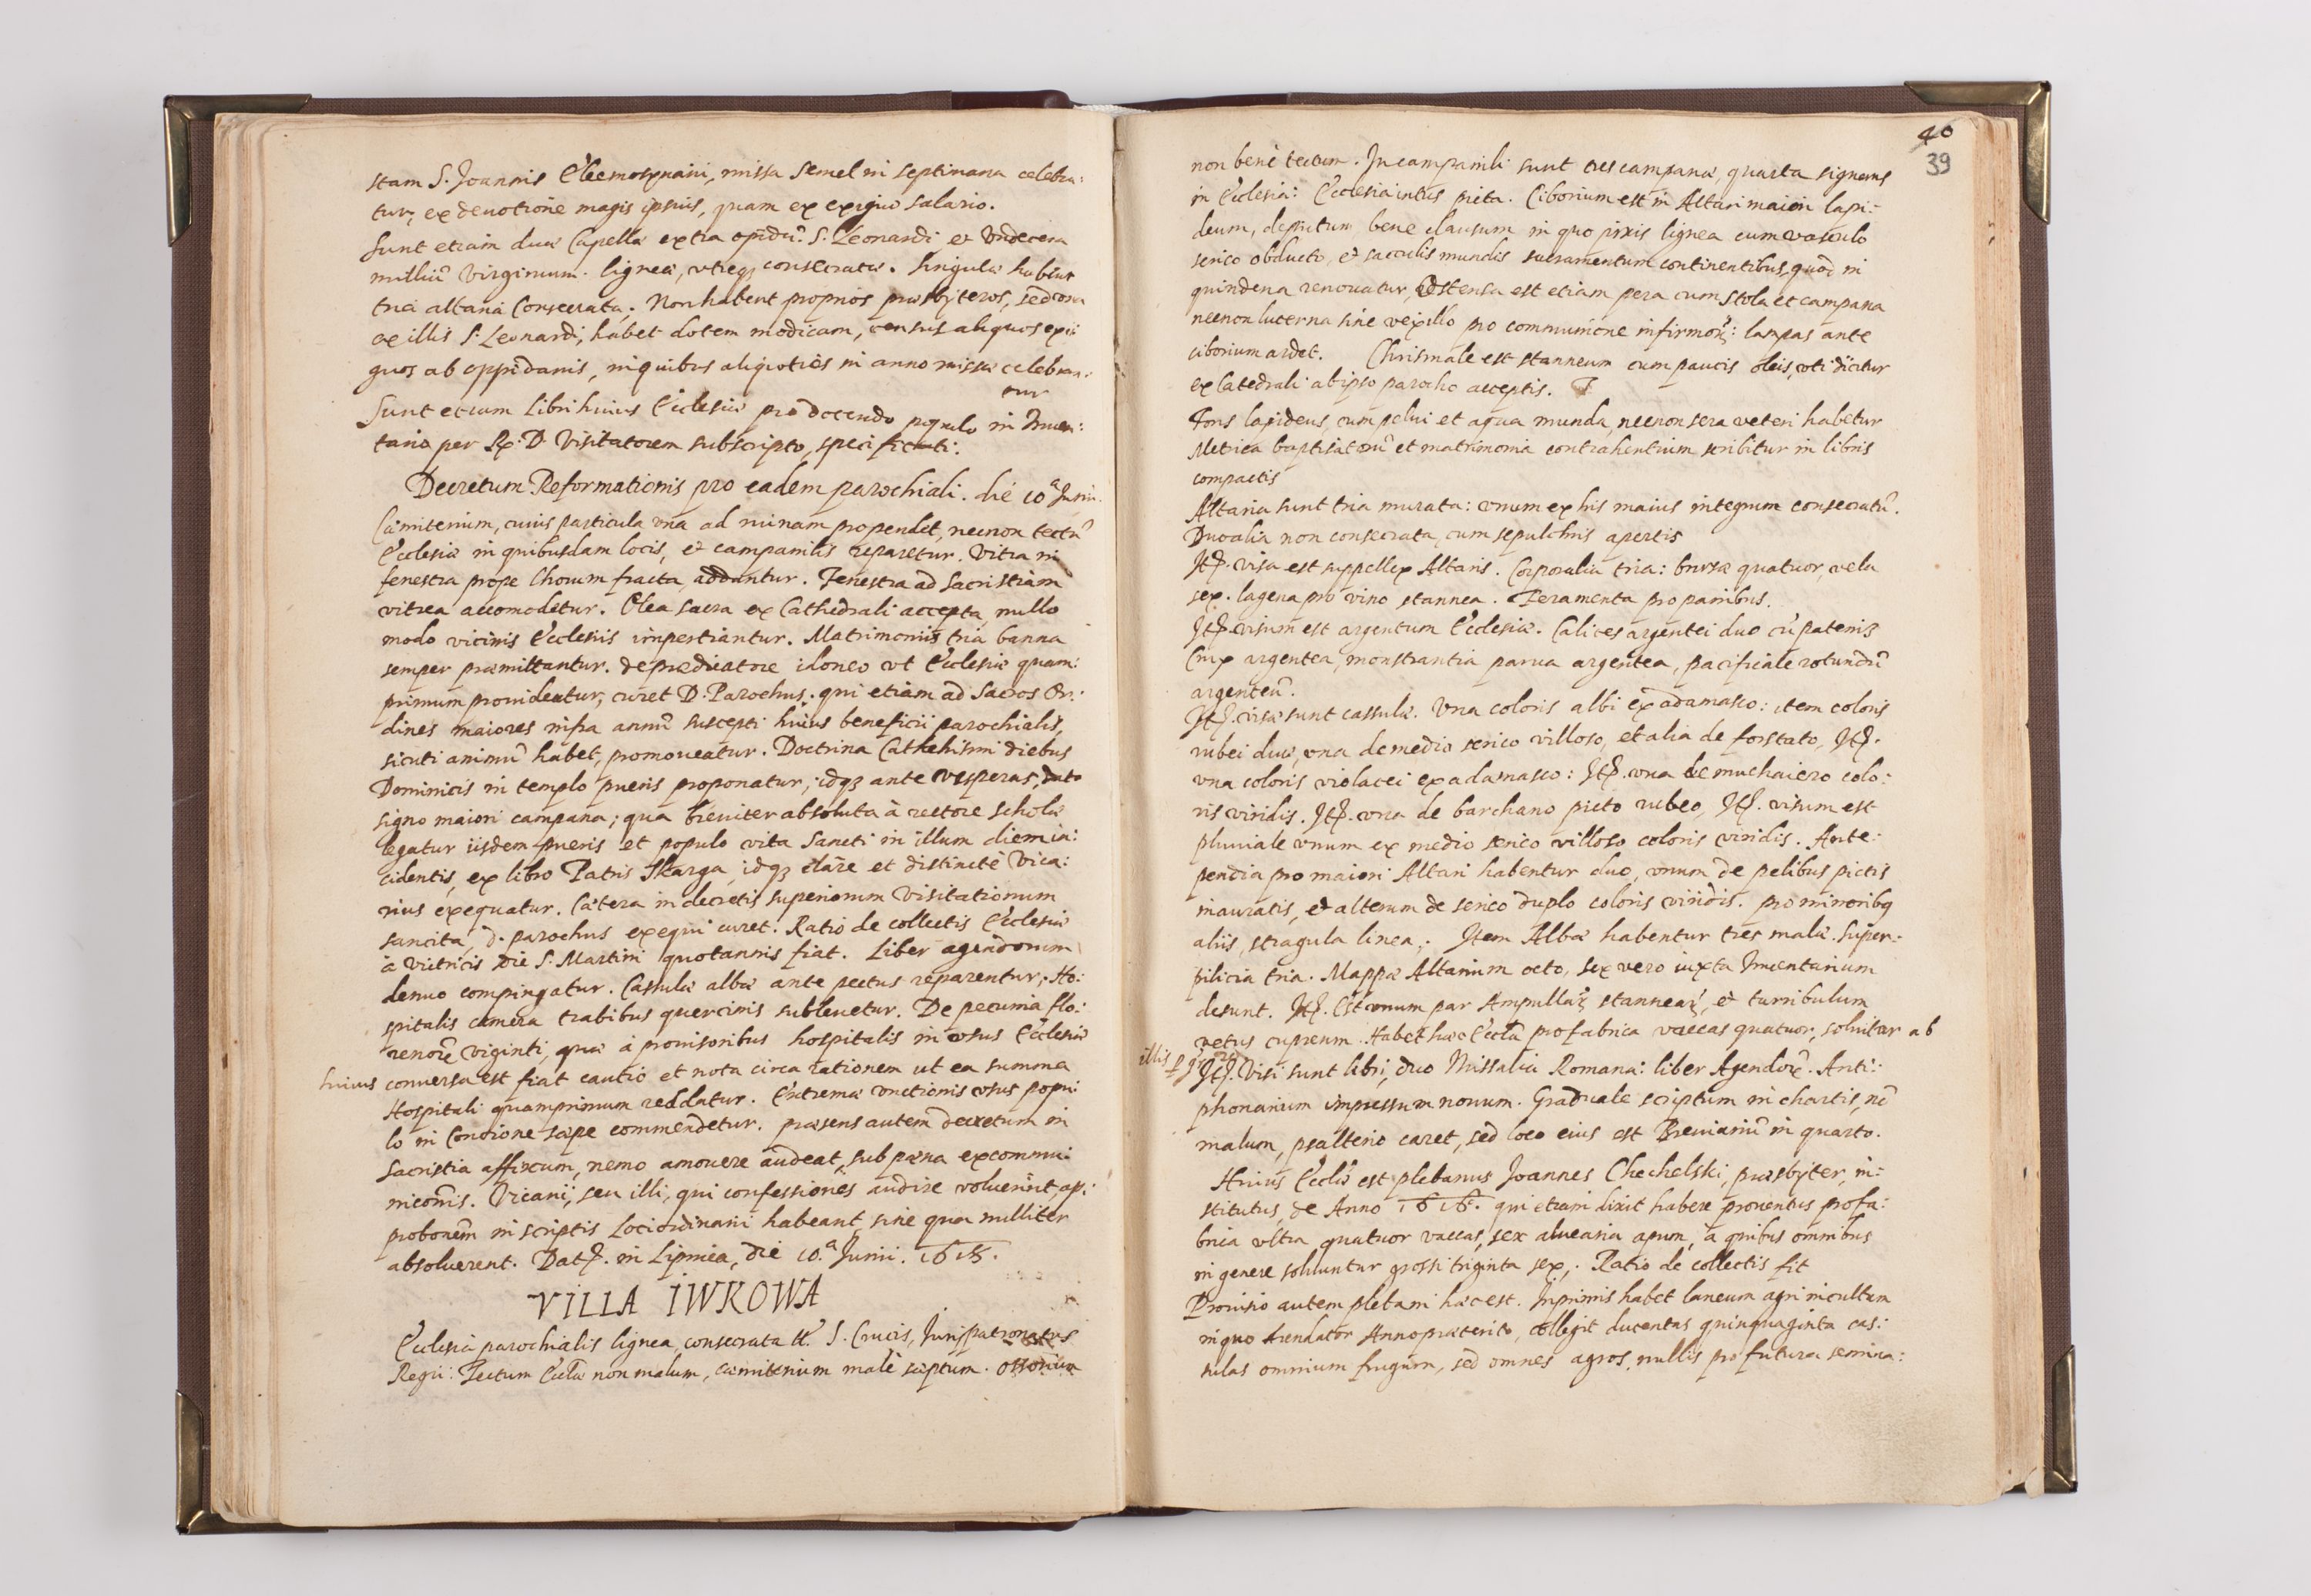 stam S. Joannis Eleemosynarii, missa semel in septimana celebra:
tur, ex deuotione magis ipsius, quam ex exiguo salario.
Sunt etiam duæ Capellæ extra opidũ: S. Leonardi et Vndecem
milliũ Virginum. ligneæ, vtreq; consecratæ. Singulæ habent
tria altaria Consecrata. Non habent proprios præsbyteros, sed vna
ex illis S. Leonardi, habet dotem modicam, census aliquos exi:
guos ab oppidanis, in quibus aliquoties in anno missæ celebran:
tur
Sunt etiam Libri huius Ecclesiæ pro docendo populo in Inuen:
tario per R. D. Visitatorem subscripto, specificati.
Decretum Reformationis pro eadem parochiali. die 10ª Junii.
Cæmiterium, cuius particula vna ad ruinam propendet, necnon tectũ
Ecclesiæ in quibusdam locis, et campanilis reparetur. Vitra in
fenestra prope Chorum fracta, addantur. Fenestra ad Sacristiam
vitrea accomodetur. Olea sacra ex Cathedrali accepta, nullo
modo vicinis Ecclesiis impertiantur. Matrimoniis tria banna
semper præmittantur. de prædicatore idoneo vt Ecclesiæ quam:
primum prouideatur, curet D. Parochus. qui etiam ad Sacros Or:
dines maiores infra annũ suscepti huius beneficii parochialis,
sicuti animũ habet, promoueatur. Doctrina Cathehismi diebus
Dominicis in templo pueris proponatur; idq; ante vesperas, dato
signo maiori campana; qua breuiter absoluta à rectore scholæ
legatur iisdem pueris et populo vita Sancti in illum diem in:
cidentis, ex libro Patris Skarga, idq; clare et distincte Vica:
rius exequatur. Cætera in decretis superiorum Visitationum
sancita, d. parochus exequi curet. Ratio de collectis Ecclesiæ
à vitricis die S. Martini quotannis fiat. Liber agendorum
denuo compingatur. Casulæ albæ ante pectus reparentur. Ho:
spitalis camera trabibus quercinis subleuetur. De pecunia flo:
renorũ viginti, quæ à prouisoribus hospitalis in vsus Ecclesiæ
huius conuersa est fiat cautio et nota circa rationem ut ea summa
Hospitali quamprimum reddatur. Extremæ vnctionis vsus popu:
lo in Concione sæpe commendetur. præsens autem decretum in
sacristia affixum, nemo amouere audeat, sub pæna excommu:
nicõnis. Vicarii, seu illi, qui confessiones audire voluerint, ap:
probonẽm in scriptis Loci ordinarii habeant, sine qua nulliter
absoluerent. Dat. in Lipnica, die 10.ª Junii. 1618.
VILLA IWKOWA
Ecclesia parochialis lignea, consecrata tt. S. Crucis, Jurispatronatus
Regii: Tectum Eccliæ non malum, cæmiterium malè sæptum. ossorium
40
39
non benè tectum. In campanili sunt tres campanæ, quarta signans
in Ecclesia: Ecclesia intus picta. Ciborium est in Altari maiori lapi:
deum, depictum bene clausum in quo pixis lignea cum vasculo
serico obducto, et sacculis mundis sacramentum continentibus, quod in
quindena renouatur, Ostensa est etiam pera cum stola et campana
necnon lucerna sine vexillo pro communione infirmorũ: lampas ante
ciborium ardet. Chrismale est stanneum cum paucis oleis, vti dicitur
ex Catedrali ab ipso parocho acceptis.
Fons lapideus, cum pelui et aqua munda, necnon sera veteri habetur
Metrica baptisatorũ et matrimonia contrahentium scribitur in libris
compactis
Altaria sunt tria murata: vnum ex his maius integrum consecratũ.
Duo alia non consecrata, cum sepulchris apertis
It. visa est suppellex Altaris. Corporalia tria: bursæ quatuor, vela
sex. lagena pro vino stannea. Feramenta pro panibus.
It. visum est argentum Ecclesiæ. Calices argentei duo cũ patenis
Crux argentea, monstrantia parua argentea, pacificale rotundũ
argenteũ.
It. visæ sunt cassulæ. Vna coloris albi ex adamasco: item coloris
rubei duæ, vna de medio serico villoso, et alia de forstato, It.
vna coloris violacei ex adamasco: It. vna de muchaiero colo:
ris viridis. It. vna de barchano picto rubeo, It. visum est
pluuiale vnum ex medio serico villoso coloris viridis. Ante:
pendia pro maiori Altari habentur duo, vnum de pelibus pictis
inauratis, et alterum de serico duplo coloris viridis. pro minoribq
aliis, stragula linea. Item Albæ habentur tres malæ. Super:
pilicia tria. Mappæ Altarium octo, sex vero iuxta Inuentarium
desunt. It. Est vnum par Ampullarũ stannearũ, et turribulum
vetus cupreum. Habet hæc Eccla pro fabrica vaccas quatuor, soluitur ab
illis
It. Visi sunt libri, duo Missalia Romana: liber Agendorũ. Anti:
phonarium impressum nouum. Graduale scriptum in chartis, nõ
malum, psalterio caret, sed loco eius est Breuiariũ in quarto.
Huius Eccliæ est plebanus Joannes Chechelski, præsbyter, in:
stitutus, de Anno 1616. qui etiam dixit habere prouentus pro fa:
brica vltra quatuor vaccas, sex aluearia apum, à quibus omnibus
in genere soluuntur grossi triginta sex. Ratio de collectis fit
Prouisio autem plebani hæc est. Inprimis habet laneum agri incultum
in quo Arendator Anno præterito, collegit ducentas quinquaginta cas:
sulas omnium frugum, sed omnes agros, nullis pro futura semina: